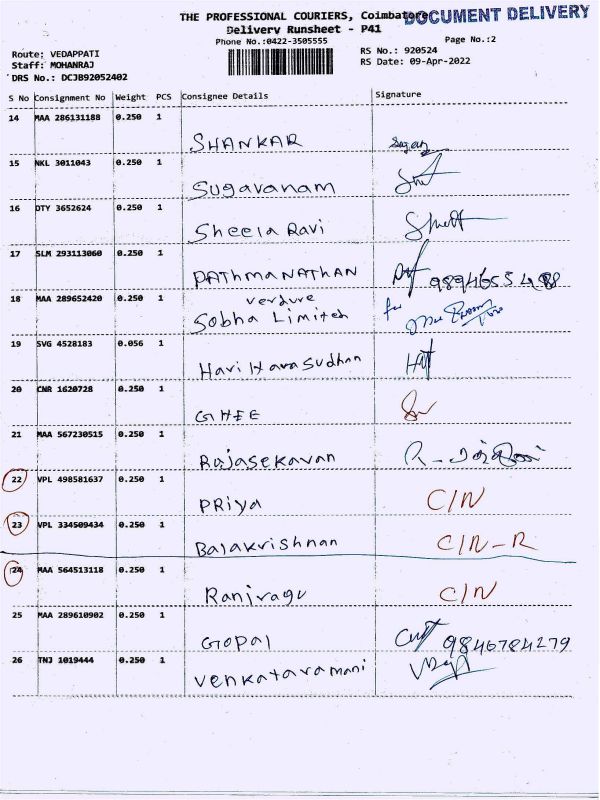 THE PROFESSIONAL COURIERS, Coimbatore
DOCUMENT DELIVERY
Delivery Runsheet - P41
Phone No.:0422-3505555
Page No.:2
Route: VEDAPPATI
RS No.: 920524
Staff: MOHANRAJ
RS Date: 09-Apr-2022
DRS No.: DCJB92052402
S No Consignment No Weight PCS Consignee Details Signature
14 MAA 286131188 0.250 1
SHANKAR
15 NKL 3011043 0.250 1
Sugavanam
16 DTY 3652624 0.250 1
Sheela Ravi
17 SLM 293113060 0.250 1
PATHMANATHAN
18 MAA 289652420 0.250 1
verdure
Sobha Limited for
19 SVG 4528183 0.056 1
Hari Hara Sudhan
20 CNR 1620728 0.250 1
GHIE
21 MAA 567230515 0.250 1
Rajasekaran
22 VPL 498581637 0.250 1
PRiya C/N
23 VPL 334509434 0.250 1
Balakrishnan C/N-R
24 MAA 564513118 0.250 1
Ranjragu C/N
25 MAA 289610902 0.250 1
Gopal 9846784279
26 TNJ 1019444 0.250 1
Venkataramani